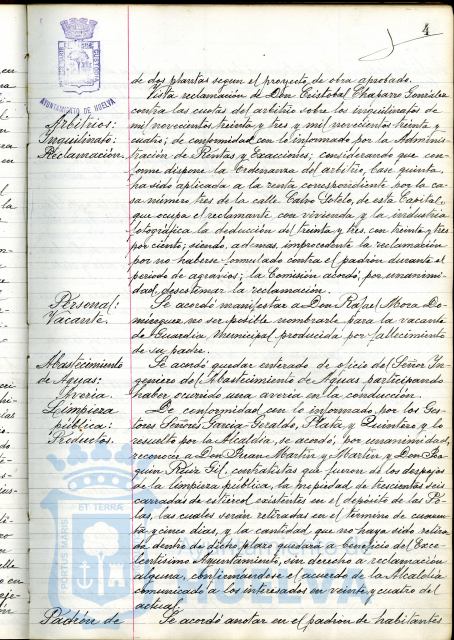 4
AYUNTAMIENTO DE HUELVA
de dos plantas segun el proyecto de obra aprobado.
Vista reclamación de Don Cristobal Chaparro González
contra las cuotas del arbitrio sobre los inquilinatos de
Arbitrios: mil novecientos treinta y tres y mil novecientos treinta y
Inquilinato: cuatro; de conformidad con lo informado por la Adminis-
Reclamación. tración de Rentas y Exacciones; considerando que con-
forme dispone la Ordenanza del arbitrio, base quinta,
ha sido aplicada a la renta correspondiente por la ca-
sa número tres de la calle Calvo Sotelo, de esta Capital,
que ocupa el reclamante con vivienda y la industria
fotográfica la deducción del treinta y tres, con treinta y tres
por ciento; siendo, ademas, improcedente la reclamación
por no haberse formulado contra el padrón durante el
periodo de agravios; la Comisión acordó, por unanimi-
dad, desestimar la reclamación.
Personal: Se acordó manifestar a Don Rafael Mora Do-
Vacante. minguez no ser posible nombrarle para la vacante
de Guardia Municipal producida por fallecimiento
de su padre.
Abastecimiento Se acordó quedar enterado de oficio del Señor In-
de Aguas: geniero del Abastecimiento de Aguas participando
Averia haber ocurrido una averia en la conducción.
Limpieza De conformidad con lo informado por los Ges-
pública: tores Señores Garcia-Geraldo, Plata y Quintero y lo
Productos. resuelto por la Alcaldia, se acordó, por unanimidad,
reconocer a Don Juan Martin y Martin y Don Joa-
quin Ruiz Gil, contratistas que fueron de los despojos
de la limpieza pública, la propiedad de trescientas seis
carradas de estiércol existentes en el depósito de las
las, las cuales serán retiradas en el término de cuaren-
ta y cinco dias, y la cantidad que no haya sido retira-
da dentro de dicho plazo quedará a beneficio del Exce-
lentisimo Ayuntamiento, sin derecho a reclamación
alguna, confirmandose el acuerdo de la Alcaldia
comunicado a los interesados en veinte y cuatro del
actual.
Padrón de Se acordó anotar en el padrón de habitantes
ET TERRA
PORTUS MARIS